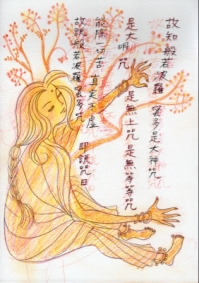 故知般若波羅蜜多是大神咒
是大明咒 是無上咒 是無等等咒
能除一切苦 真實不虛
故說般若波羅蜜多咒 即說咒曰